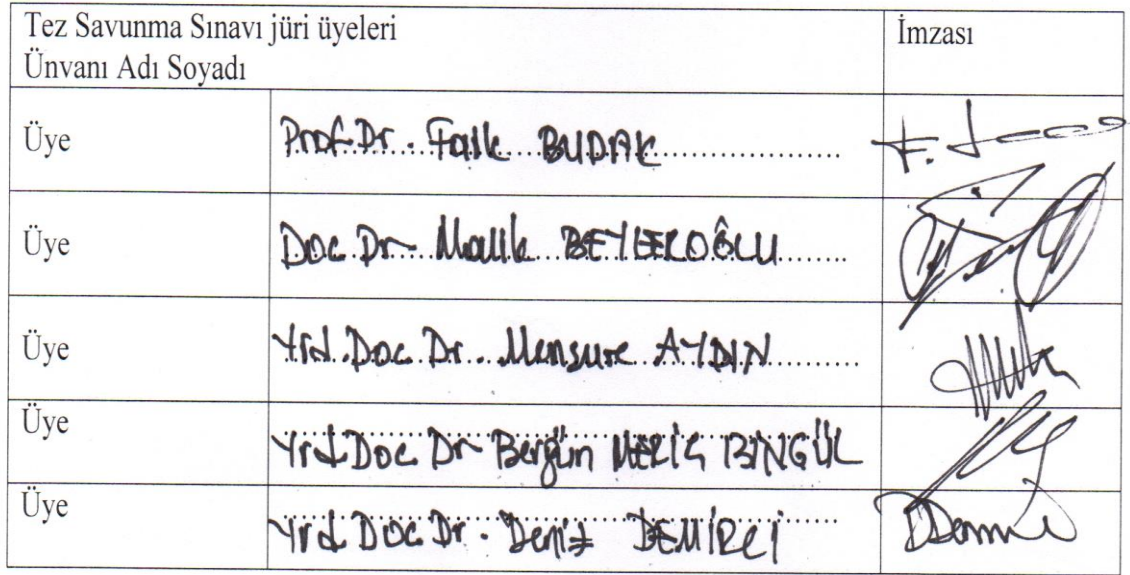 Tez Savunma Sınavı jüri üyeleri
Ünvanı Adı Soyadı
İmzası
Üye Prof.Dr. Faik BUDAK
Üye Doc.Dr. Malik BEYLEROĞLU
Üye Yrd.Doc.Dr. Mensure AYDIN
Üye Yrd.Doc.Dr Bergün MERİÇ BİNGÜL
Üye Yrd.Doc.Dr. Deniz DEMİRCİ